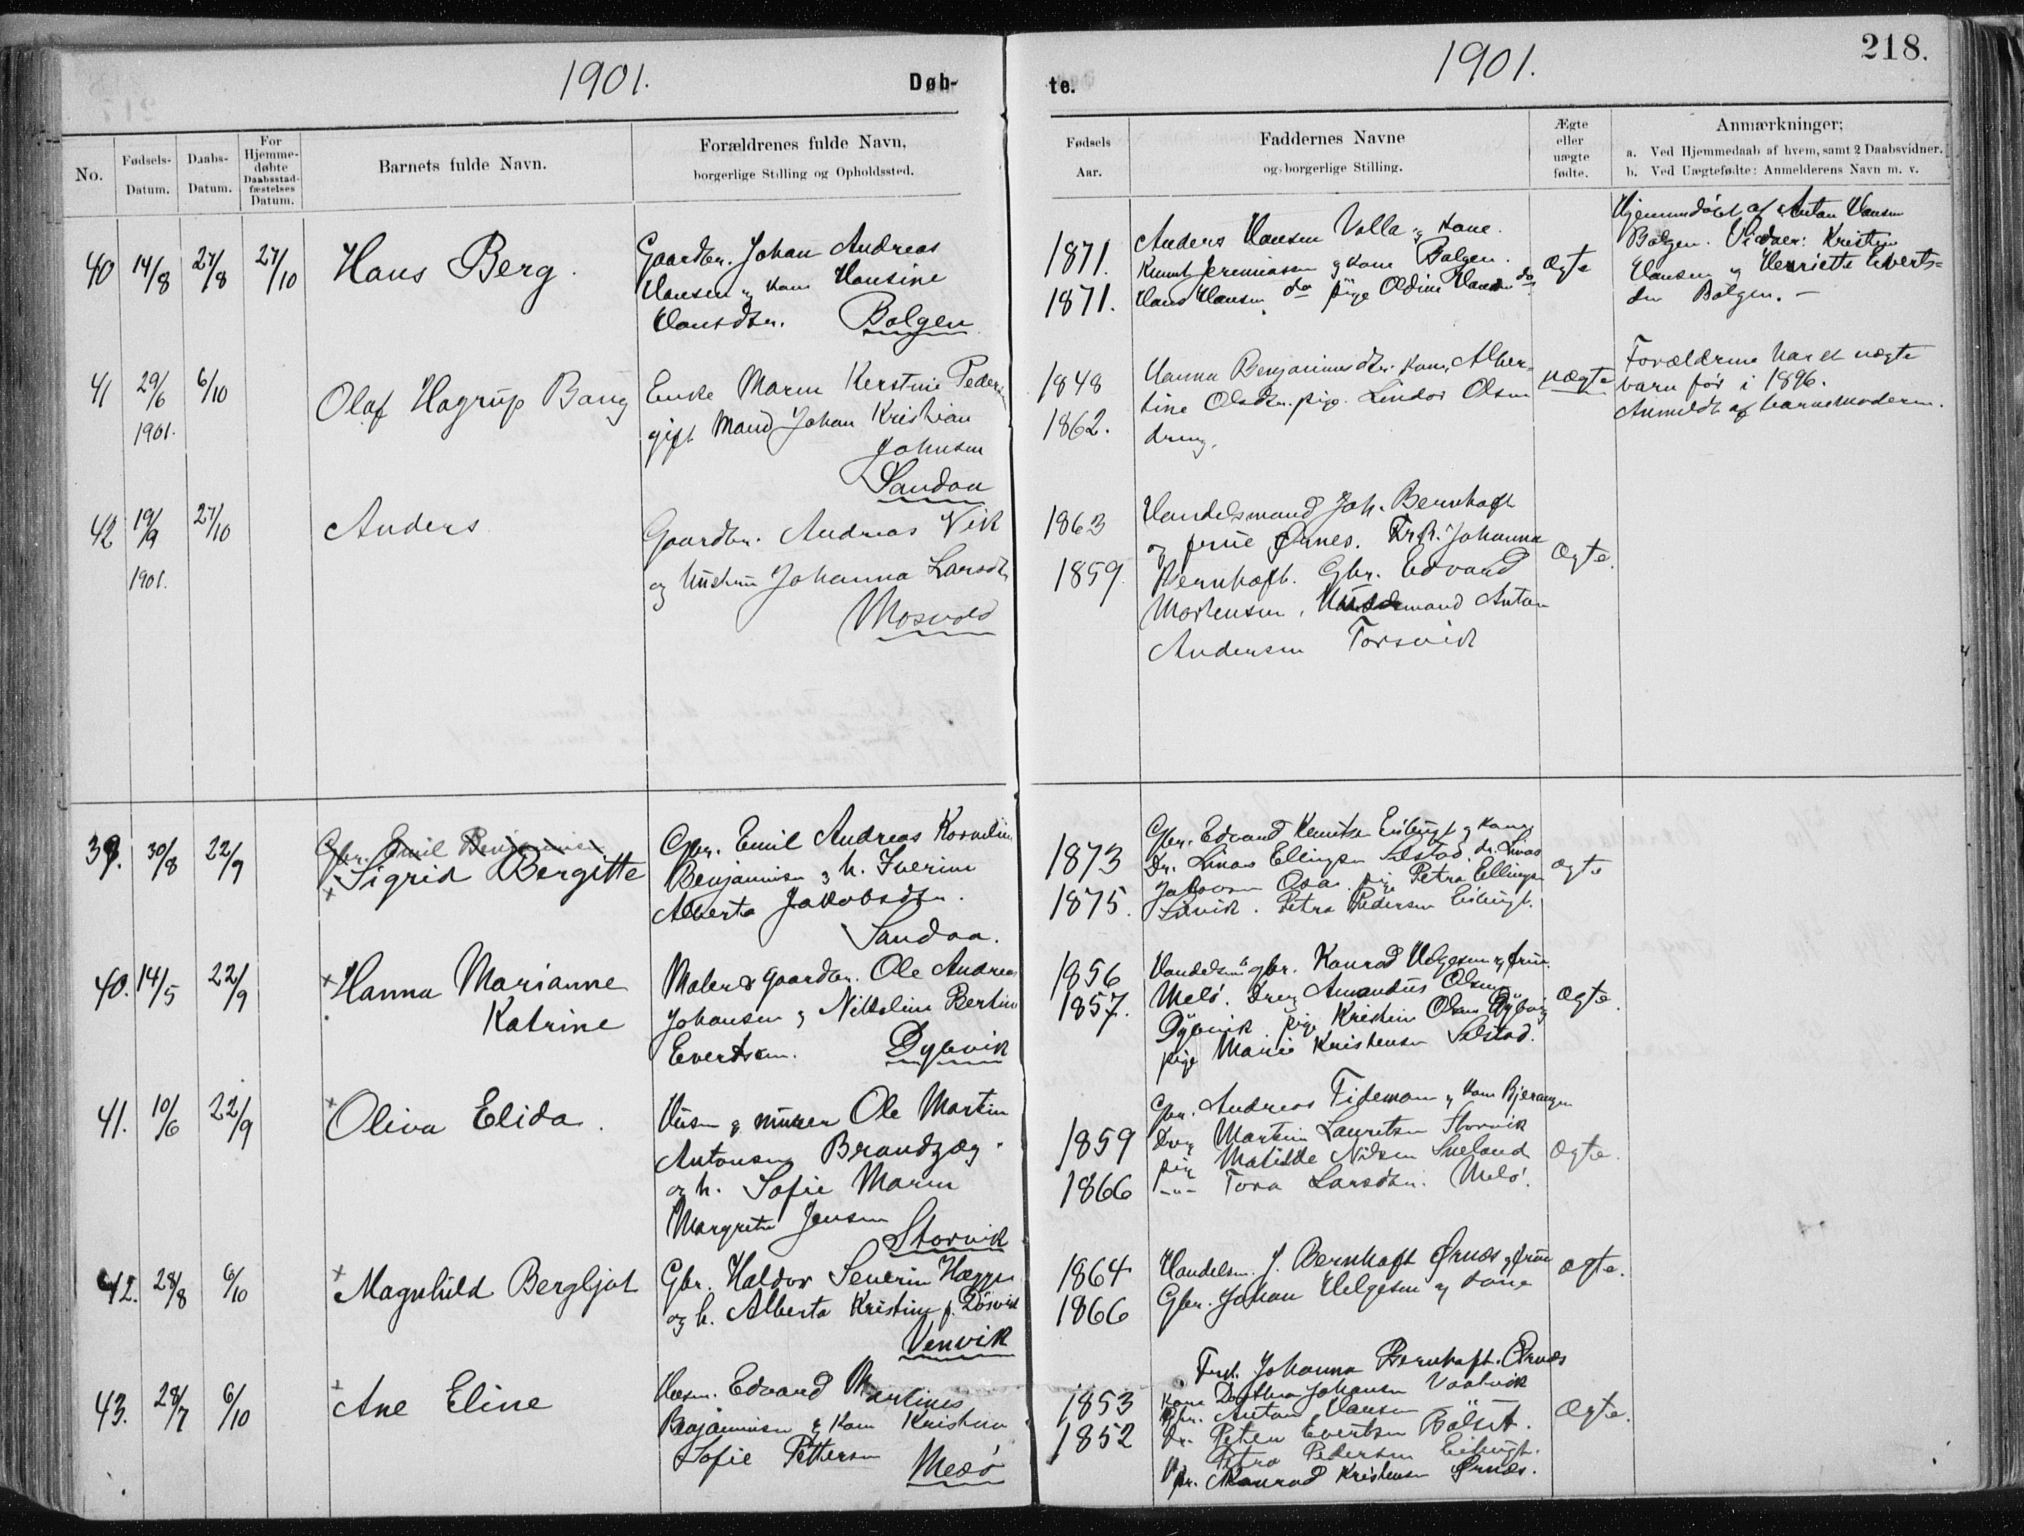 1901.
Døb-
te.
1901.
218.
No.
Fødsels-
Datum.
Daabs-
Datum.
For
Hjemme-
døbte
Daabsstad-
fæstelses
Datum.
Barnets fulde Navn.
Forældrenes fulde Navn,
borgerlige Stilling og Opholdssted.
Fødsels
Aar.
Faddernes Navne
og borgerlige Stilling.
Ægte
eller
uægte
fødte.
Anmærkninger;
a. Ved Hjemmedaab af hvem, samt 2 Daabsvidner.
b. Ved Uægtefødte: Anmelderens Navn m. v.
40 14/8 27/8 27/10 Hans Berg.
Gaardbr. Johan Andreas
Hansen og kone Hansine
Hansdtr. Bolgen
1871.
1871.
Anders Hansen Valla og kone.
Knut Jeremiassen og kone Bolgen.
Hans Hansen do pige Oldine Hansen do
Ægte
Hjemmedøbt af Anton Hansen
Bolgen. Vidner: Kristine
Hansen og Henriette Everts-
den Bolgen. –
41 29/6 1901. 6/10 Olaf Hagrup Bang
Enke Maren Kerstine Peder
gift Mand Johan Kristian
Johnsen
Sandaa
1848
1862.
Hanna Benjaminsdtr. kone, Alber-
tine Olsdtr. pige. Lindor Olsen
dreng.
uægte
Forældrene har et uægte
barn før i 1896.
Anmeldt af barnemoderen.
42 19/9 1901. 27/10 Anders
Gaardbr. Andreas Vik
og hustru Johanna Larsdtr
Mosvold
1863
1859.
Handelsmand Joh. Bernhoft
og frue Ørnes. Frk. Johanna
Bernhoft. Gbr. Edvard
Mortensen, mand Anton
Andersen Torsvik
Ægte.
39. 30/8 22/9 Gbr. Emil Benjaminsen
Sigrid Bergitte
Gbr. Emil Andreas Kornelius
Benjaminsen og h. Iverine
Alberta Jakobsdtr.
Sandaa.
1873
1875.
Gbr. Edvard Knutsen Eidbugt og kone
Dr. Linas Ellingsen Selstad. dr. Linas
Jakobsen Osa. pige Petra Ellingsen
Petra Pedersen Eidbugt.
ægte
40. 14/5 22/9 Hanna Marianne
Katrine
Maler & gaardbr. Ole Andreas
Johansen og Nikoline Bertine
Evertsen. Dybvik
1856
1857.
Handelsm & gbr. Konrad Helgesen og frue.
Melø. Dreng Amandus Olsen
Dybvik. pige Kristine Olsen Dybvig
pige Marie Kristensen Selstad.
Ægte.
41. 10/6 22/9 Oliva Elida.
Husm & murer Ole Martin
Antonsen Brandzæg.
og h. Sofie Maren
Margrete Jensen
Storvik
1859
1866
Gbr. Andreas Tideman og kone Bjerangen
Dreng Martin Lauritsen Storvik
pige Matilde Nilsen
-"- Tora Larsdtr. Melø.
Ægte.
42. 28/8 6/10 Magnhild Bergljot
Gbr. Haldor Severin Hægge
og h. Alberta Kristine f. Døsvik
Venvik
1864
1866
Handelsm. J. Bernhoft Ørnæs og frue
Gbr. Johan Helgesen og kone
Ægte.
43. 28/7 6/10 Ane Eline
Husm. Edvard Martines
Benjaminsen og kone Kristine
Sofie Pettersen Mesø
1853
1852
Frk. Johanna Bernhoft. Ørnæs
kone Dorthea Johansen Vaatvik
Gbr. Anton Hansen
Dr. Peter Evertsen Bolset.
Petra Pedersen Eidbugt.
Konrad Kristensen Ørnæs.
Ægte.